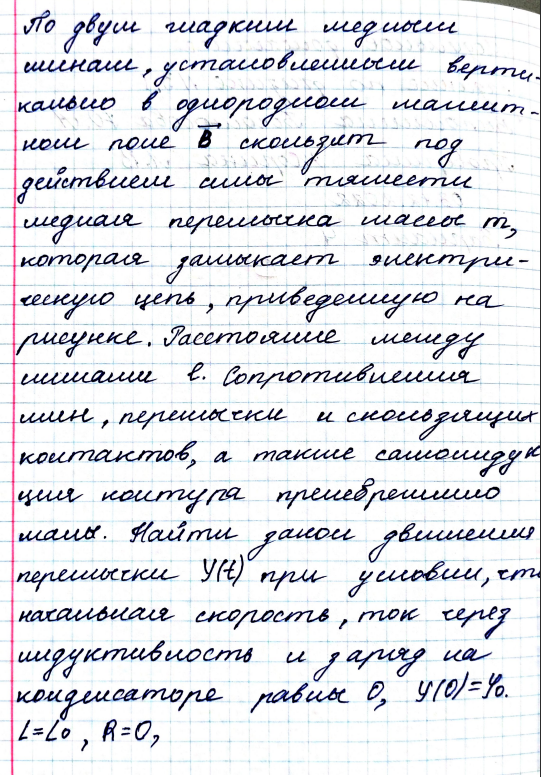 По двум гладким медным
шинам, установленным верти-
кально в однородном магнит-
ном поле B скользит под
действием силы тяжести
медная перемычка массы m,
которая замыкает электри-
ческую цепь, приведенную на
рисунке. Расстояние между
шинами l. Сопротивления
шин, перемычки и скользящих
контактов, а также самоиндук
ция контура пренебрежимо
малы. Найти закон движения
перемычки Y(t) при условии, что
начальная скорость, ток через
индуктивность и заряд на
конденсаторе равны 0, Y(0)=Y0.
L=L0, R=0,